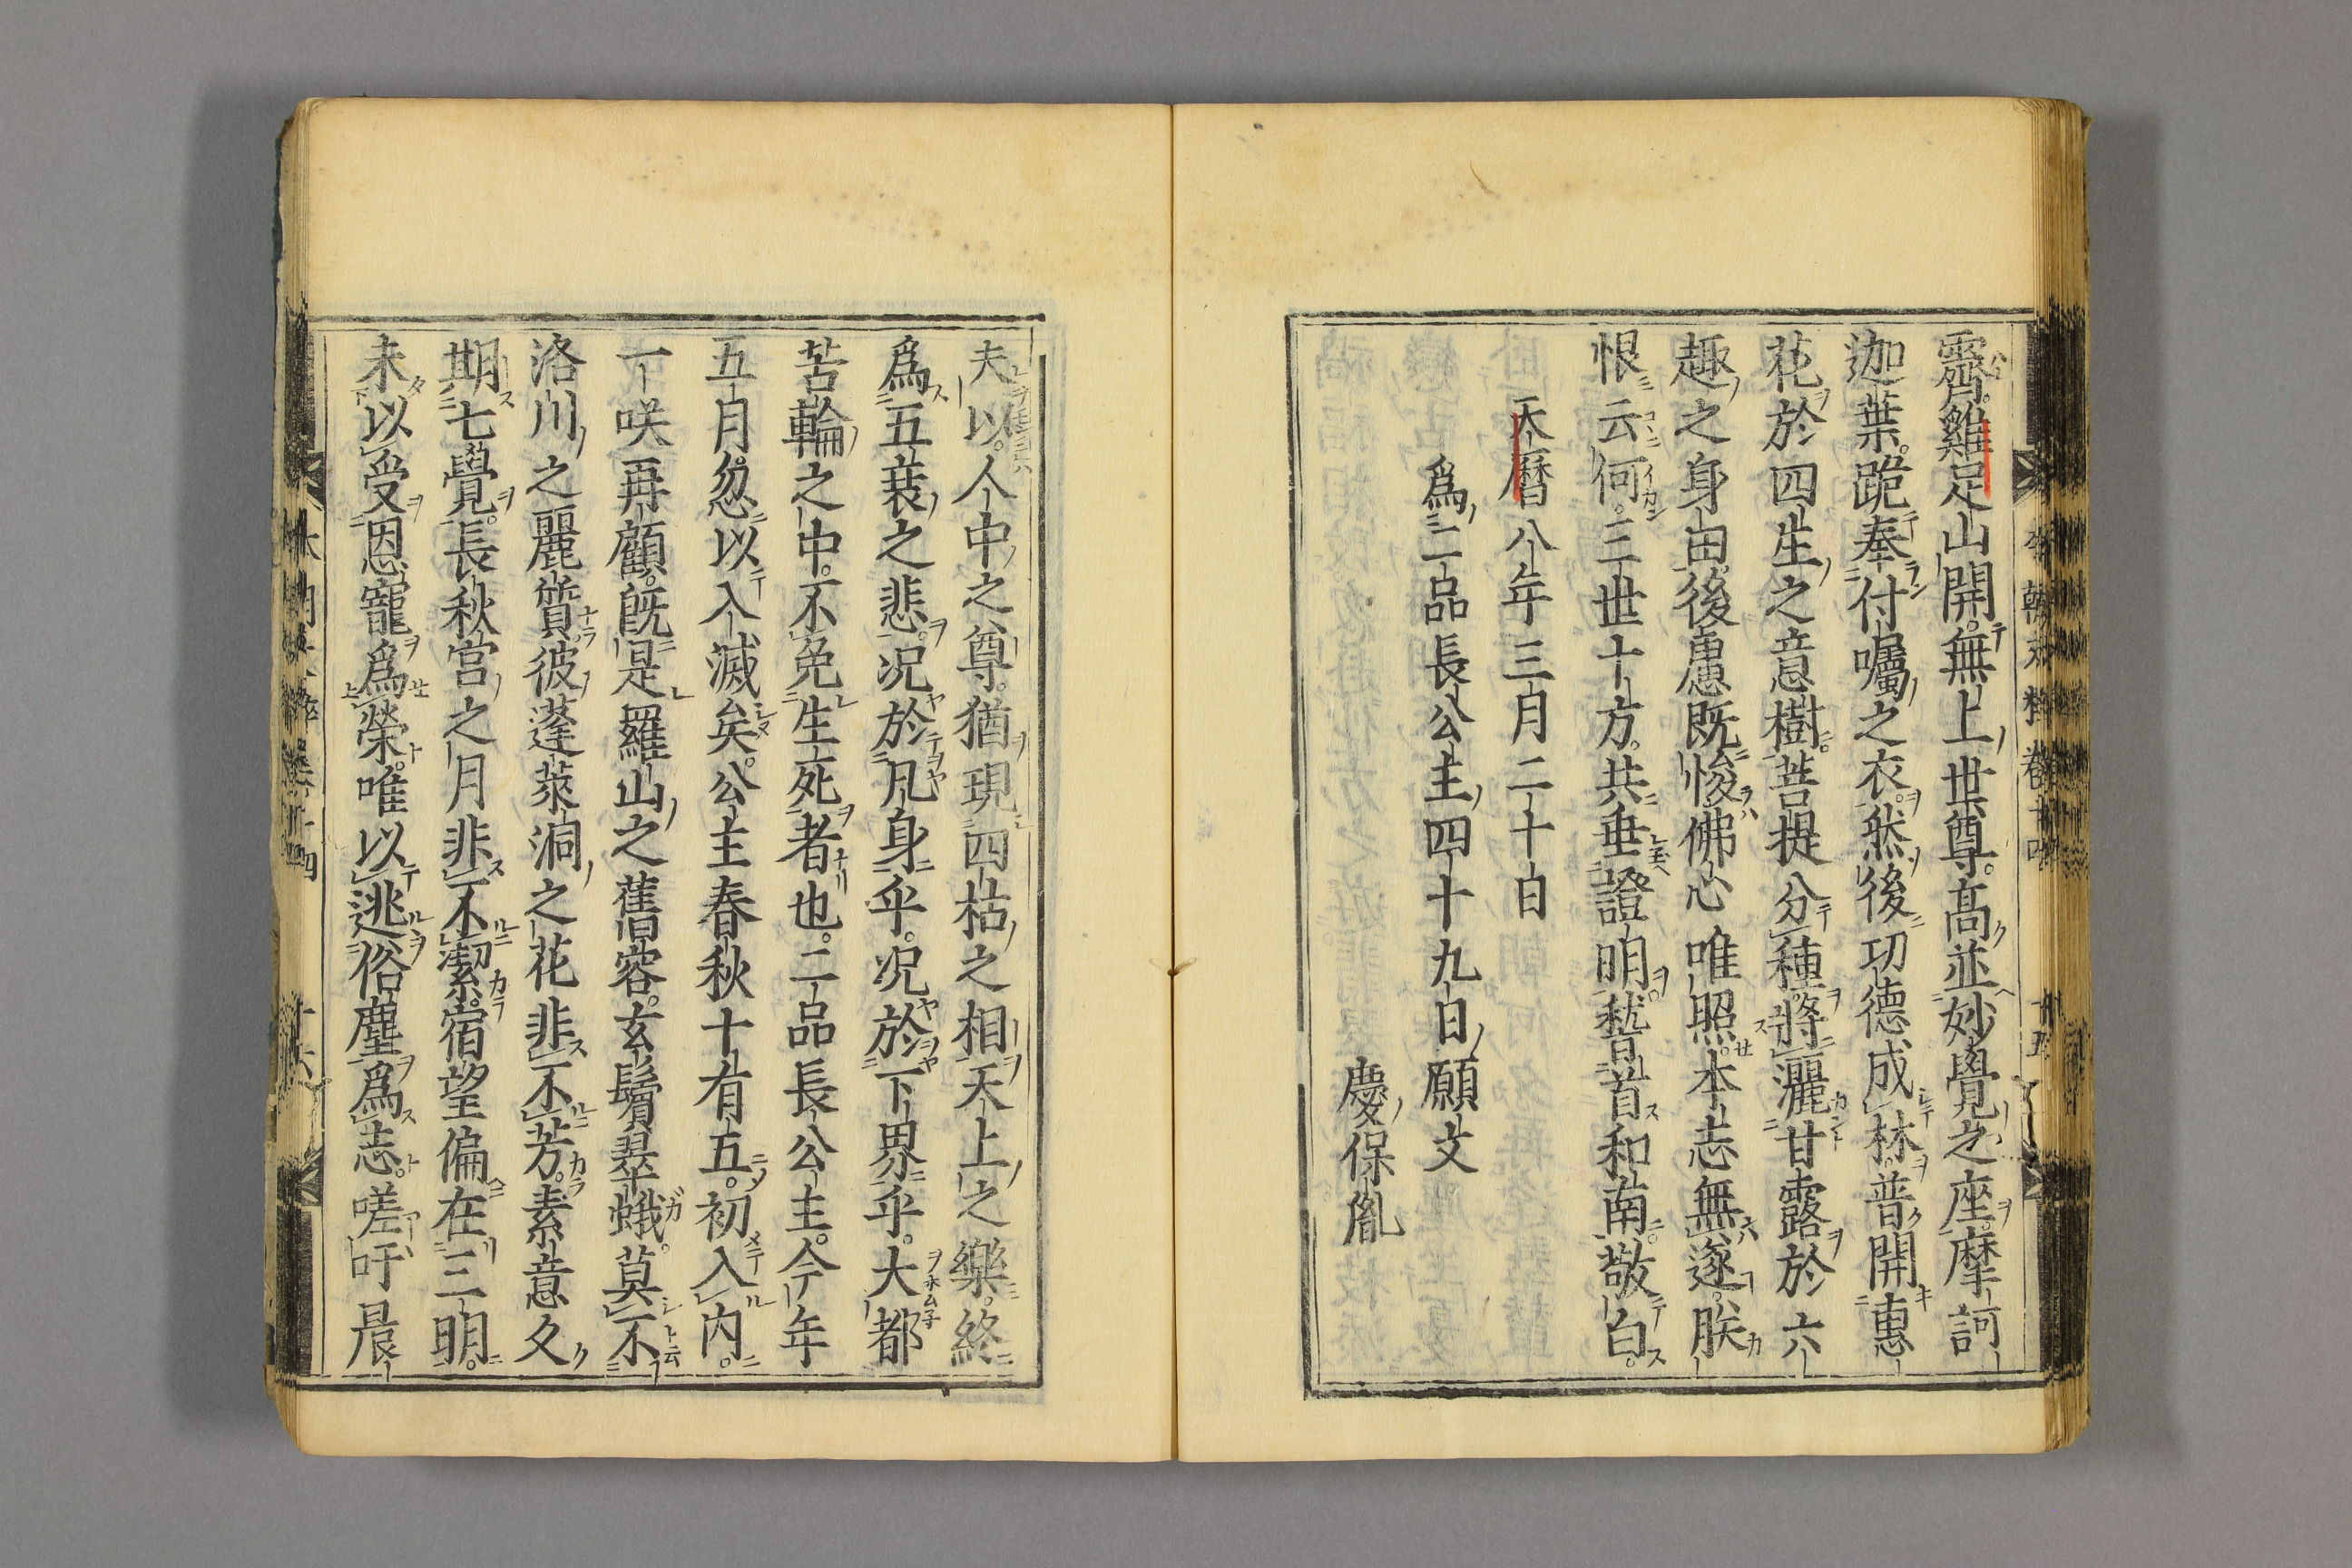 霽。雞足山開。無上世尊。高並妙覺之座。摩訶
迦葉。跪奉付囑之衣。然後功德成林。普開惠
花於四生之意樹。菩提分種。將灑甘露於六
趣之身田。後慮旣悛。佛心唯照。本志無遂。朕
恨云何。三世十方。共垂證明。稽首和南。敬白。
天曆八年三月二十日
爲二品長公主四十九日願文
慶保胤
夫以。人中之尊。猶現四枯之相。天上之樂。終
爲五衰之悲。況於凡身乎。況於下界乎。大都
苦輪之中。不免生死者也。二品長公主。今年
五月。忽以入滅矣。公主春秋十有五。初入內。
一咲再顧。旣是羅山之舊容。玄鬢翠蛾。莫不
洛川之麗質。彼蓬萊洞之花非不芳。素意久
期七覺。長秋宮之月非不潔。宿望偏在三明。
未以受恩寵爲榮。唯以逃俗塵爲志。嗟吁晨
本朝文粹卷十四 十五
本朝文粹卷十四 十六